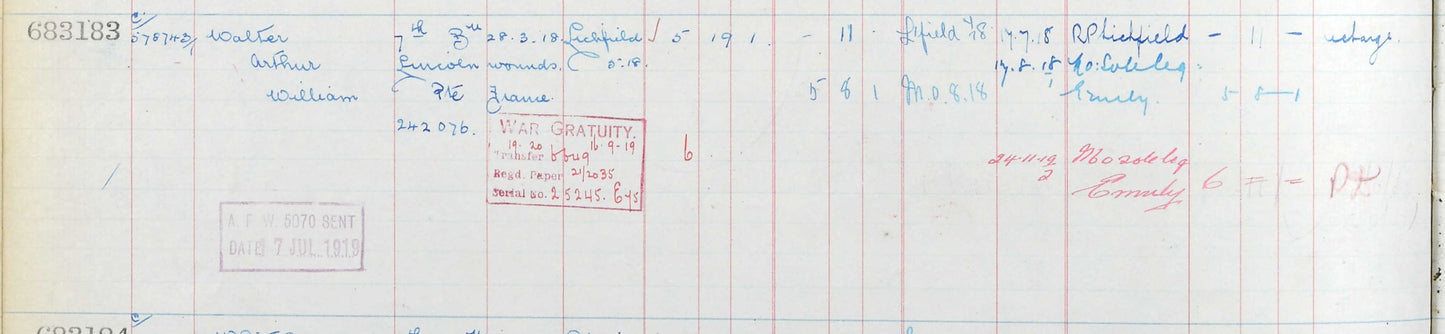 683183 E/ 578743/1 Walter 7th Bn 28.3.18. Lichfield / 5 19 1. - 11 - L'field 7/18 17.7.18 RP Lichfield - 11 - recharge.
Arthur Lincoln wounds. 5.18. 17.8.18 Mo: Sole Leg:
William Pte France. 5 8 1 M.O. 8.18 1 Emily. 5 8 - 1
242076.
WAR GRATUITY.
19-20 16-9-19
Transfer 6 24-11-19 Mo Sole Leg
Regd. Paper 21/2035 2 Emily 6 = = -
Serial No. 25245.
A. F. W. 5070 SENT
DATE 7 JUL 1919
683184